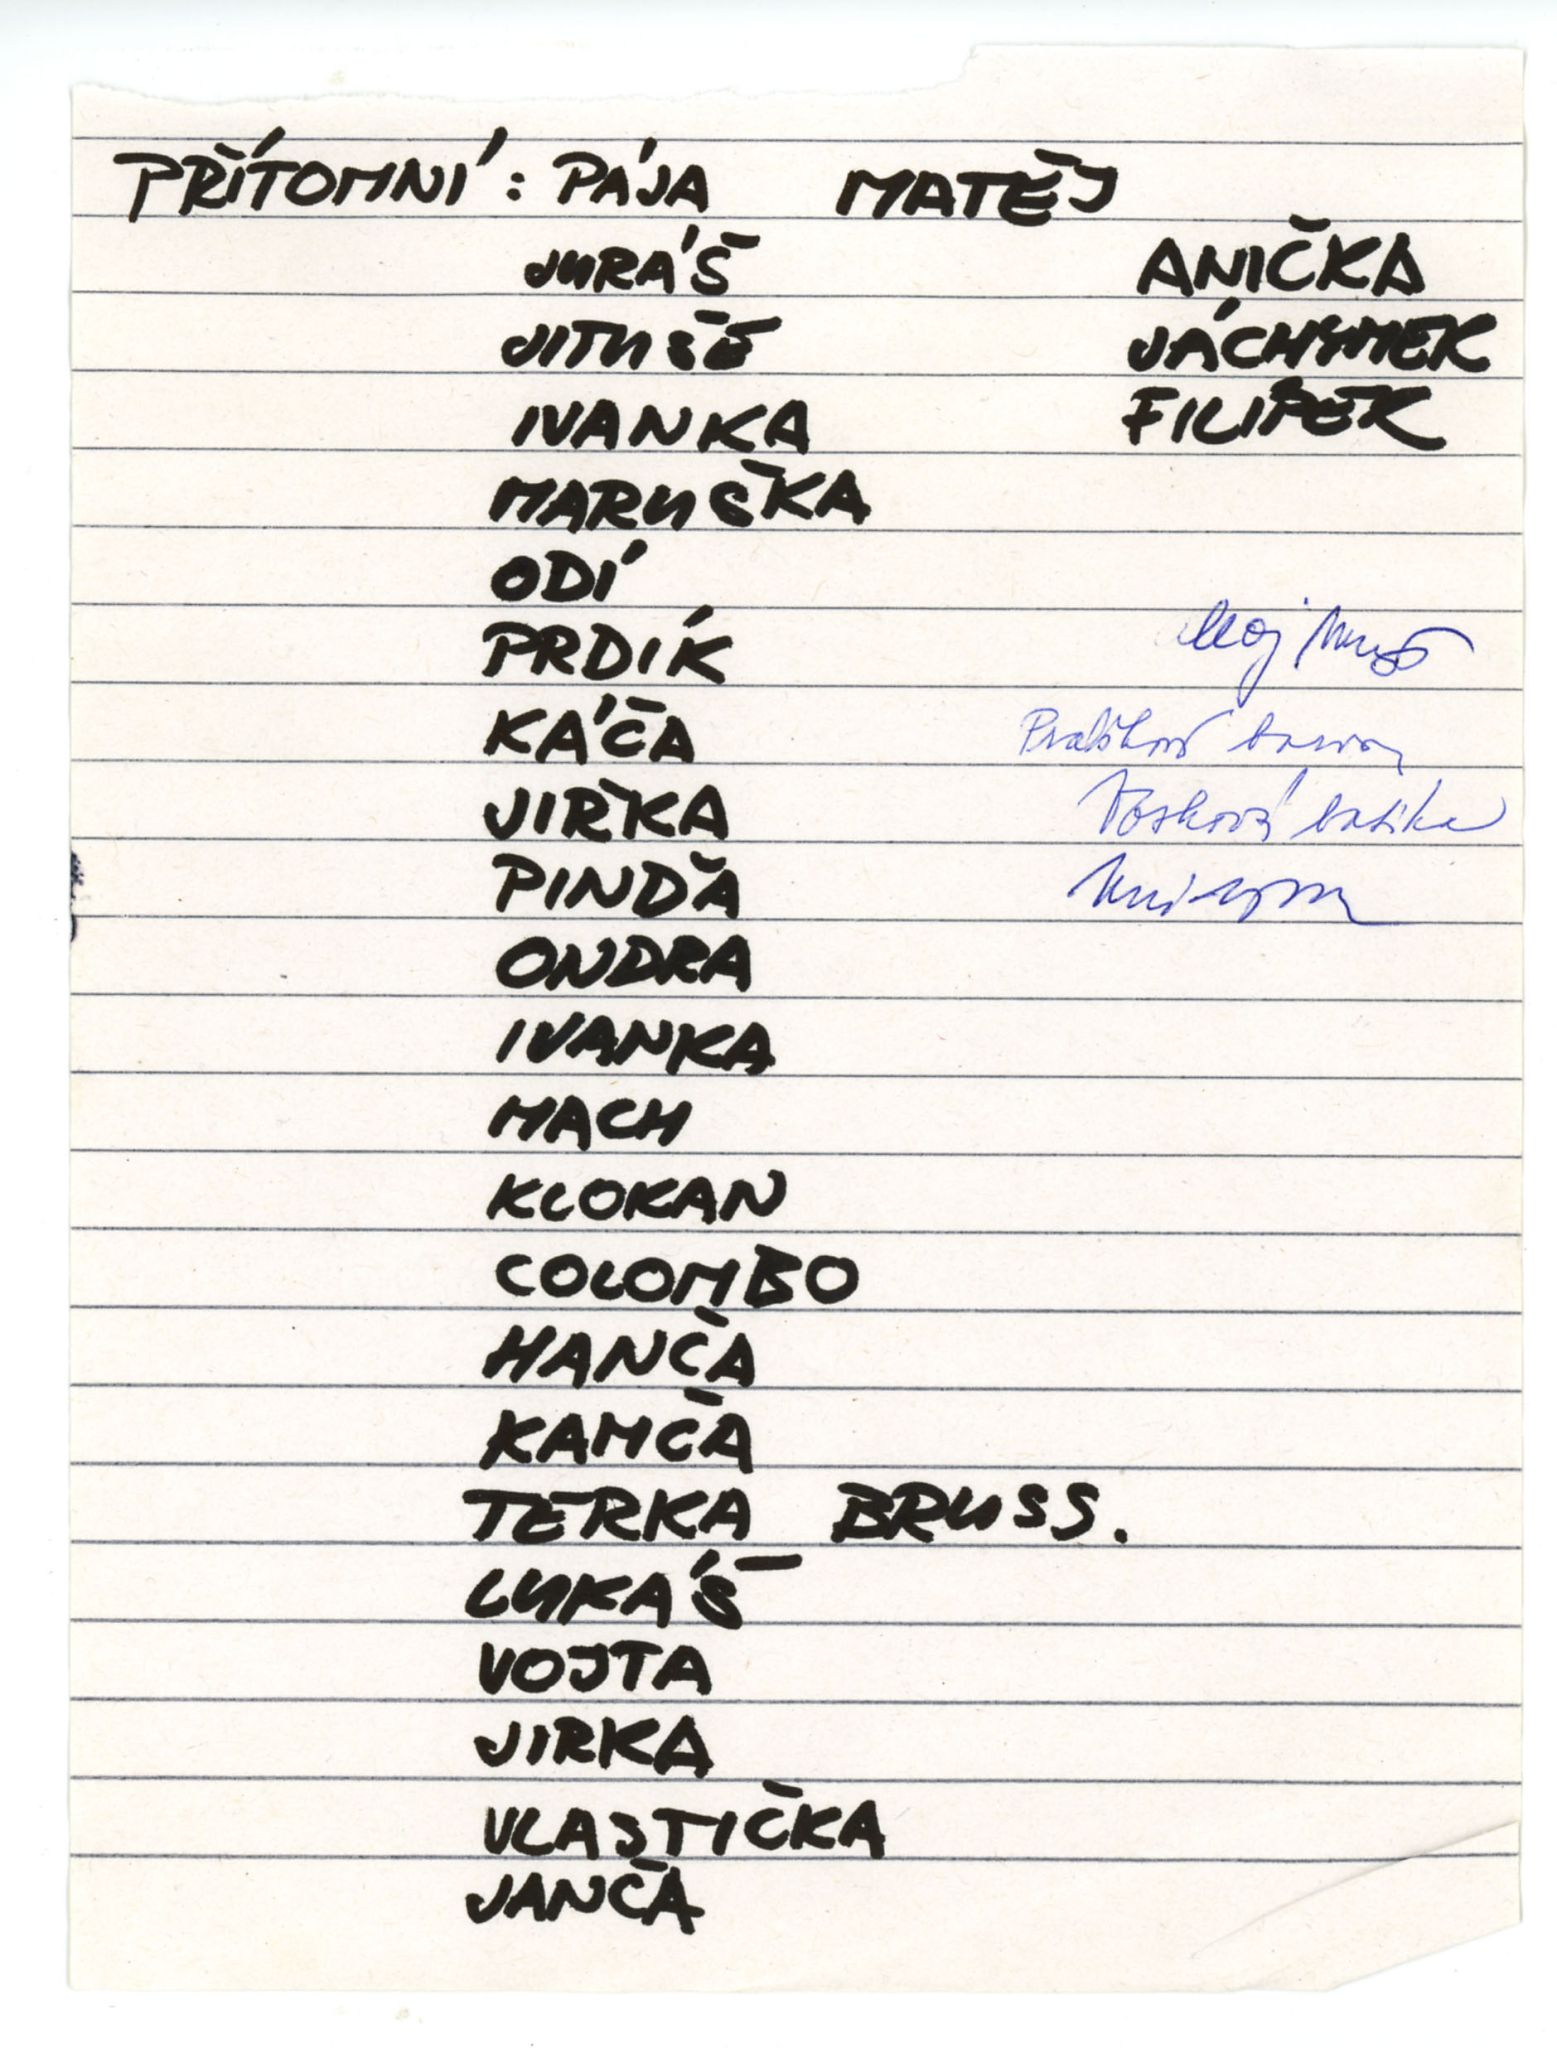 PŘÍTOMNÍ: PÁJA MATĚJ
JURÁŠ ANIČKA
JITUŠE JÁCHYMEK
IVANKA FILÍPEK
MARUŠKA
ODÍ
PRDÍK
KÁČA
JIRKA
PINĎA
ONDRA
IVANKA
MACH
KLOKAN
COLOMBO
HANČA
KAMČA
TERKA BRUSS.
LUKÁŠ
VOJTA
JIRKA
VLASTIČKA
JANČA
Vosková batika